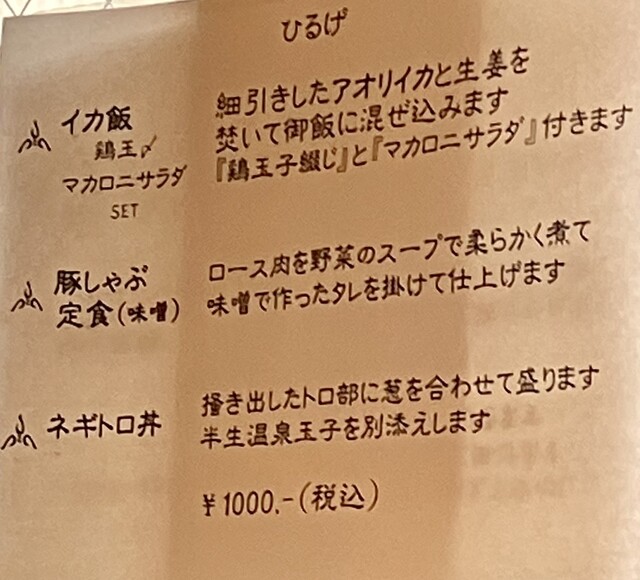 ひるげ
イカ飯
鶏玉〆
マカロニサラダ
SET
細引きしたアオリイカと生姜を
焚いて御飯に混ぜ込みます
『鶏玉子綴じ』と『マカロニサラダ』付きます
豚しゃぶ
定食(味噌)
ロース肉を野菜のスープで柔らかく煮て
味噌で作ったタレを掛けて仕上げます
ネギトロ丼
掻き出したトロ部に葱を合わせて盛ります
半生温泉玉子を別添えします
¥1000.-(税込)